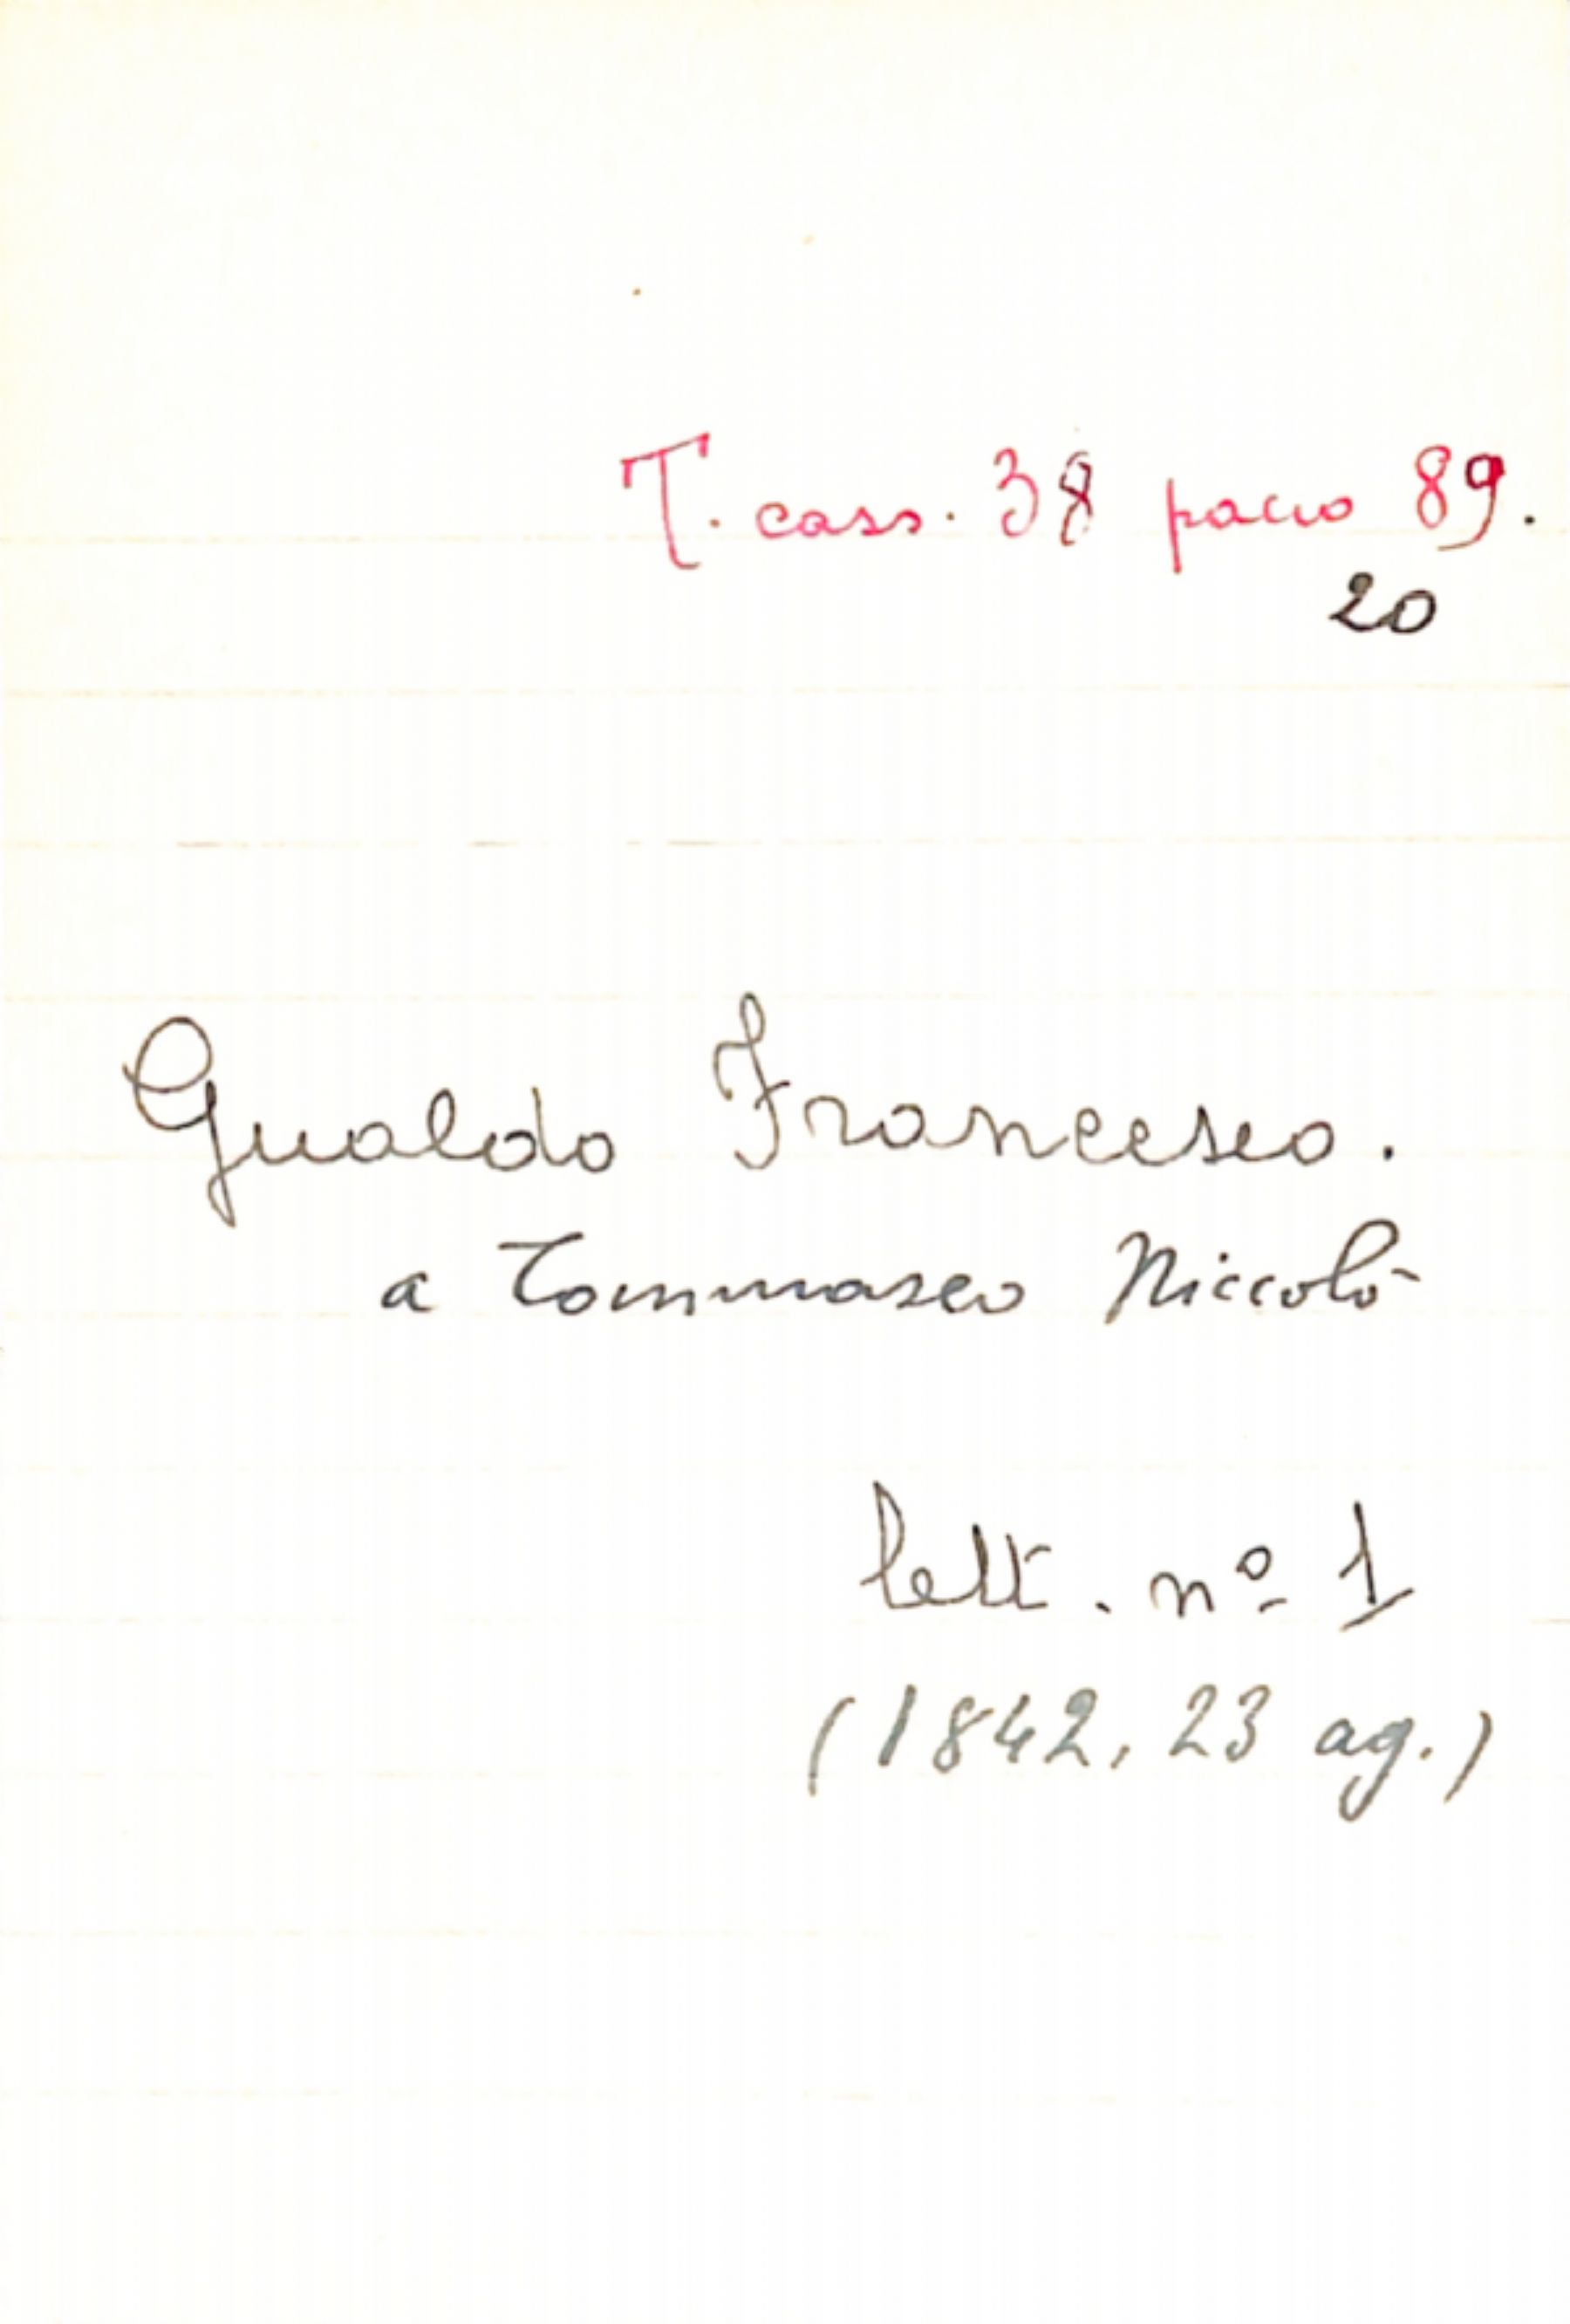 T. cass. 38 pacco 89.
20
Gualdo Francesco.
a Tommaseo Niccolò
lett. nº 1
(1842, 23 ag.)